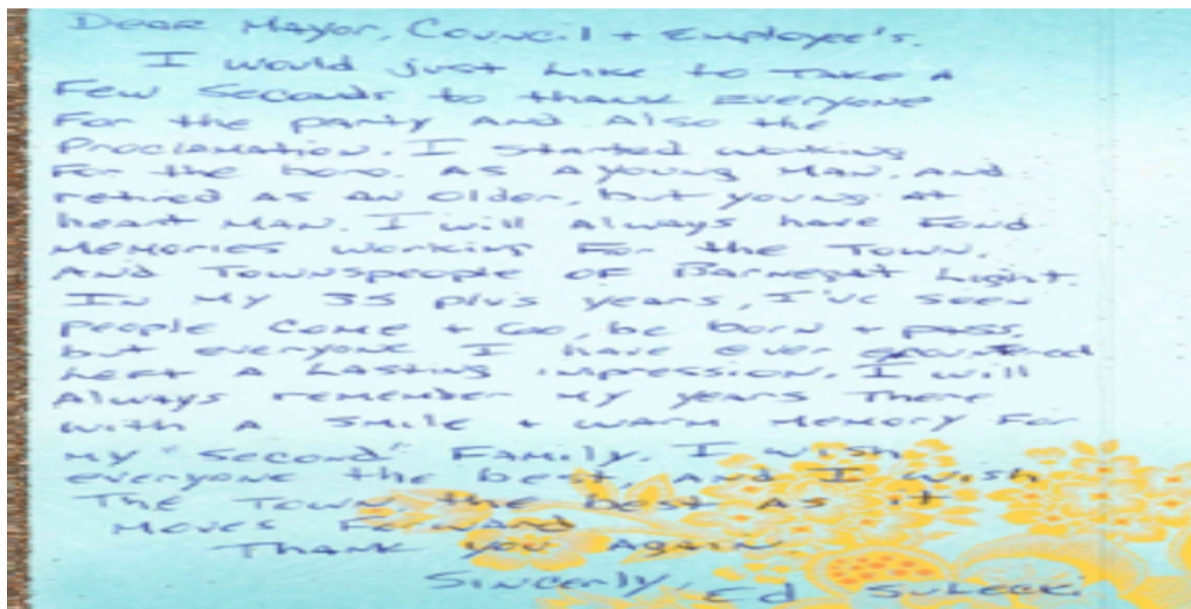 Dear Mayor, Council + Employee's.
I would just like to take a
Few Seconds to thank Everyone
For the party And Also the
Proclamation. I started working
For the boro. As A young Man, And
retired As An Older, but young At
heart Man. I will Always have Fond
Memories working For the Town,
And Townspeople of Barnegat Light.
In My 35 plus years, I've seen
people Come + Go, be born + pass,
but everyone I have ever
Left A Lasting impression. I will
Always remember My years There
with A Smile + warm Memory For
My "Second" Family. I wish
everyone the best, And I wish
The Town the best As it
Moves Forward
Thank you Again.
Sincerly, Ed Sulecki